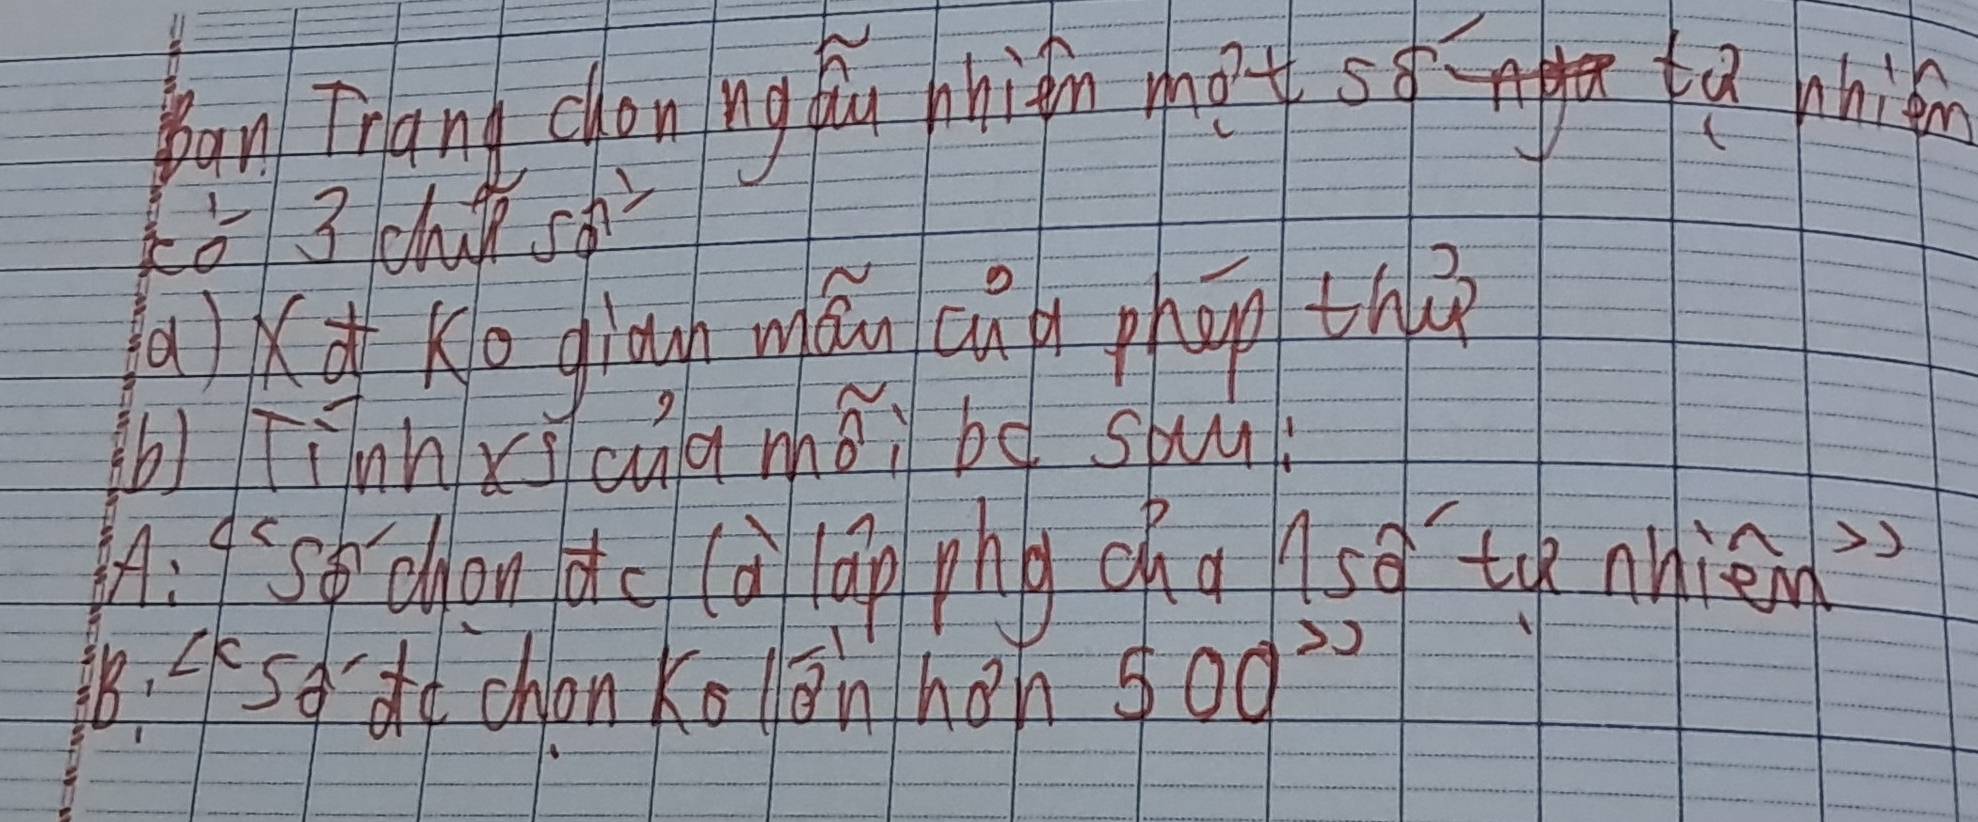 Bạn Trang chọn ngẫu nhiên một số tự nhiên
có 3 chữ số
a) Xđ ko gian mẫu của phép thử
b) Tính xs của mỗi bc sau:
A: "Số chọn đc là lập phg của 1 số tự nhiên"
B: "Số đc chọn ko lớn hơn 500"